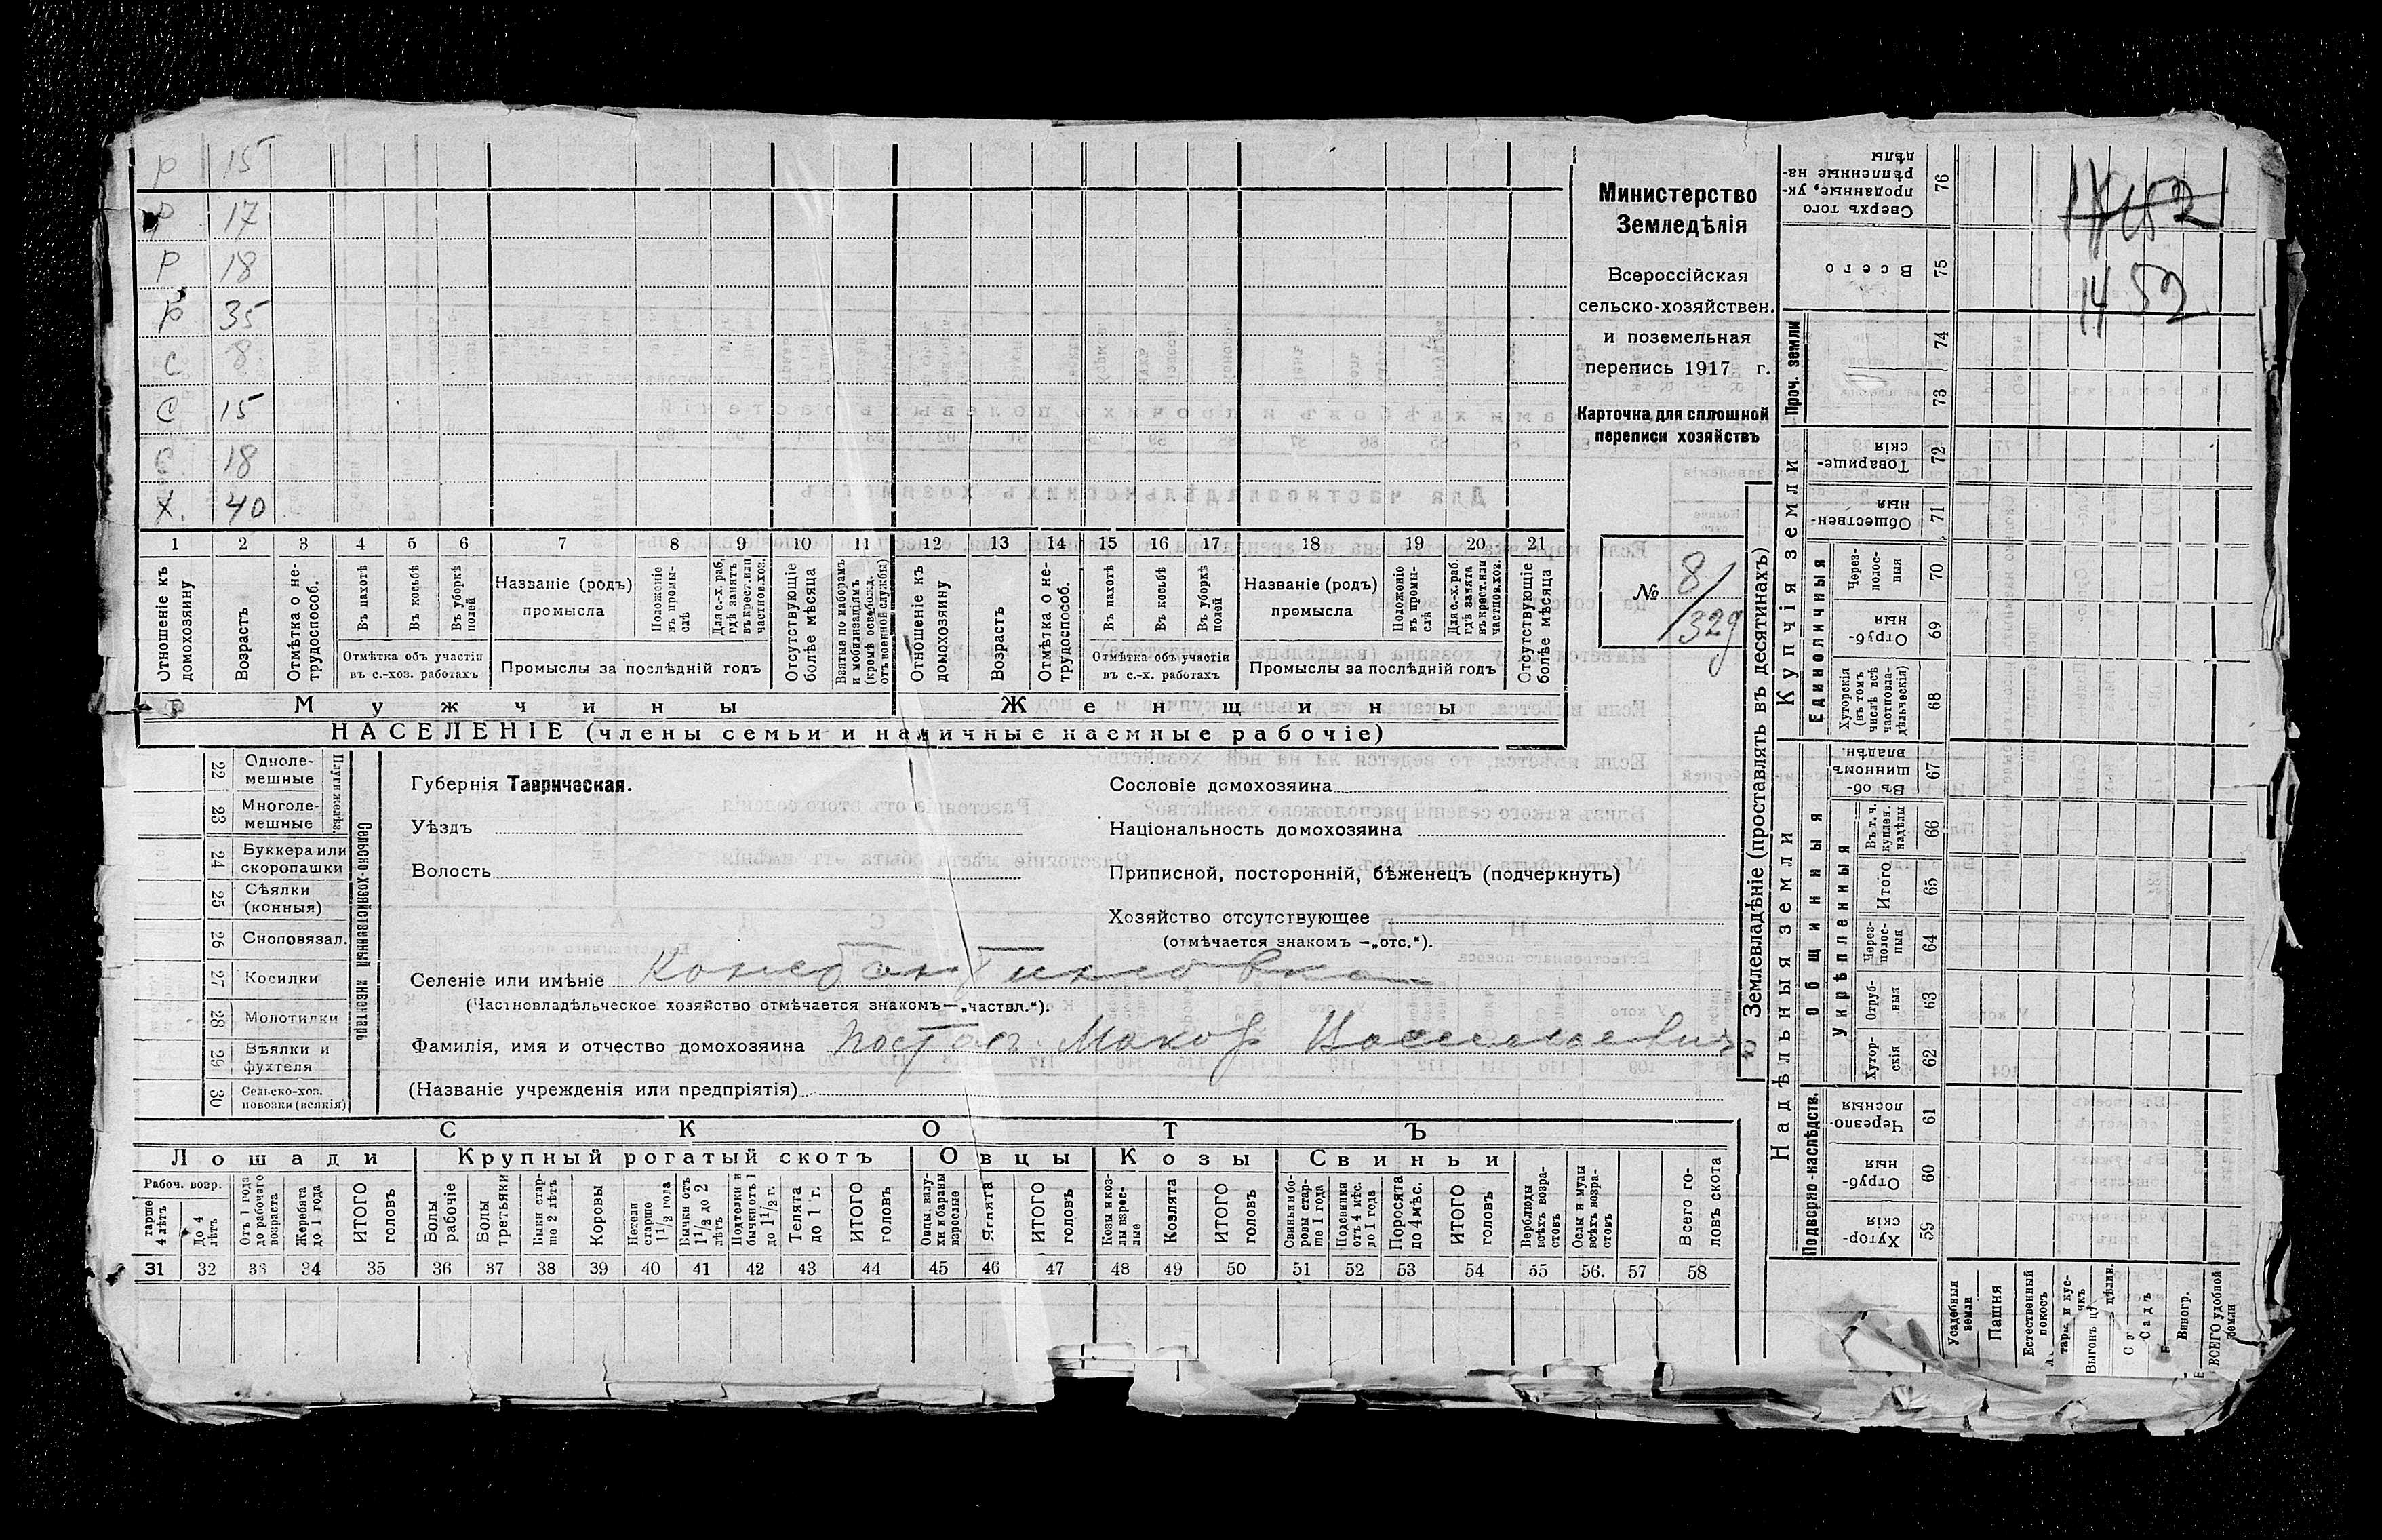 Р 15
Р 17
Р 18
Р 35
С 8
С 15
С 18
Х. 40
1 2 3 4 5 6 7 8 9 10 11 12 13 14 15 16 17 18 19 20 21
Отношеніе къ домохозяину
Возрастъ
Отмѣтка о не-трудоспособ.
Въ пахотѣ
Въ косьбѣ
Въ уборкѣ полей
Отмѣтка объ участіи въ с.-хоз. работахъ
Названіе (родъ) промысла
Положеніе въ промы-слѣ
Для с.-х. раб, гдѣ занятъ въ крест. или частнов. хоз.
Промыслы за послѣдній годъ
Отсутствующіе болѣе мѣсяца
Взятые по наборамъ и мобилизаціямъ (кромѣ освобожд. отъ военной службы)
Отношеніе къ домохозяину
Возрастъ
Отмѣтка о не-трудоспособ.
Въ пахотѣ
Въ косьбѣ
Въ уборкѣ полей
Отмѣтка объ участіи въ с.-х. работахъ
Названіе (родъ) промысла
Положеніе въ промы-слѣ
Для с.-х. раб. гдѣ занята въ крест. или частнов. хоз.
Промыслы за послѣдній годъ
Отсутствующіе болѣе мѣсяца
Мужчины Женщины
НАСЕЛЕНІЕ (члены семьи и наличные наемные рабочіе)
Министерство
Земледѣлія
Всероссійская
сельско-хозяйствен.
и поземельная
перепись 1917 г.
Карточка для сплошной
переписи хозяйствъ
№ 8/329
22 Одноле-мешные
23 Многоле-мешные
Плуги желѣз.
24 Буккера или скоропашки
25 Сѣялки (конныя)
26 Сноповязал.
27 Косилки
28 Молотилки
29 Вѣялки и фухтеля
30 Сельско-хоз. повозки (всякія)
Сельско-хозяйственный инвентарь
Губернія Таврическая.
Уѣздъ
Волость
Сословіе домохозяина
Національность домохозяина
Приписной, посторонній, бѣженецъ (подчеркнуть)
Хозяйство отсутствующее
(отмѣчается знакомъ —„отс.“).
Селеніе или имѣніе Константиновка
(Частновладѣльческое хозяйство отмѣчается знакомъ—„частвл.“).
Фамилія, имя и отчество домохозяина Макар Васильевич
(Названіе учрежденія или предпріятія)
СКОТЪ
Лошади Крупный рогатый скотъ Овцы Козы Свиньи
Рабоч. возр.
тарше 4 лѣтъ
До 4 лѣтъ
Отъ 1 года до рабочаго возраста
Жеребята до 1 года
ИТОГО головъ
Волы рабочіе
Волы третьяки
Быки стар-ше 2 лѣтъ
Коровы
Нетели старше 1 1/2 года
Бычки отъ 1 1/2 до 2 лѣтъ
Подтелки и бычки отъ 1 до 1 1/2 г.
Телята до 1 г.
ИТОГО головъ
Овцы, валу-хи и бараны взрослые
Ягнята
ИТОГО головъ
Козы и коз-лы взрос-лые
Козлята
ИТОГО головъ
Свиньи и бо-ровы стар-ше 1 года
Подсвинки отъ 4 мѣс. до 1 года
Поросята до 4 мѣс.
ИТОГО головъ
Верблюды всѣхъ возра-стовъ
Ослы и мулы всѣхъ возра-стовъ
Всего го-ловъ скота
31 32 33 34 35 36 37 38 39 40 41 42 43 44 45 46 47 48 49 50 51 52 53 54 55 56. 57 58
Землевладѣніе (проставлять въ десятинахъ)
Надѣльныя земли
Купчія земли
Проч. земли
Подворно-наслѣдств.
Общинныя
Укрѣпленныя
Единоличныя
Сверхъ того проданные, ук-рѣпленные на-дѣлы 76
Всего 75
74
73
Товарище-скія 72
Обществен-ныя 71
Через-полос-ныя 70
Отруб-ныя 69
Хуторскія (въ томъ числѣ всѣ частновла-дѣльческія) 68
Въ об-щинномъ владѣн. 67
Въ т. ч. куплен. надѣлы 66
Итого 65
Через-полос-ныя 64
Отруб-ныя 63
Хутор-скія 62
Черезпо-лосныя 61
Отруб-ныя 60
Хутор-скія 59
1452
Усадебныя земли
Пашня
Естественный покосъ
Садъ
Виногр.
ВСЕГО удобной земли